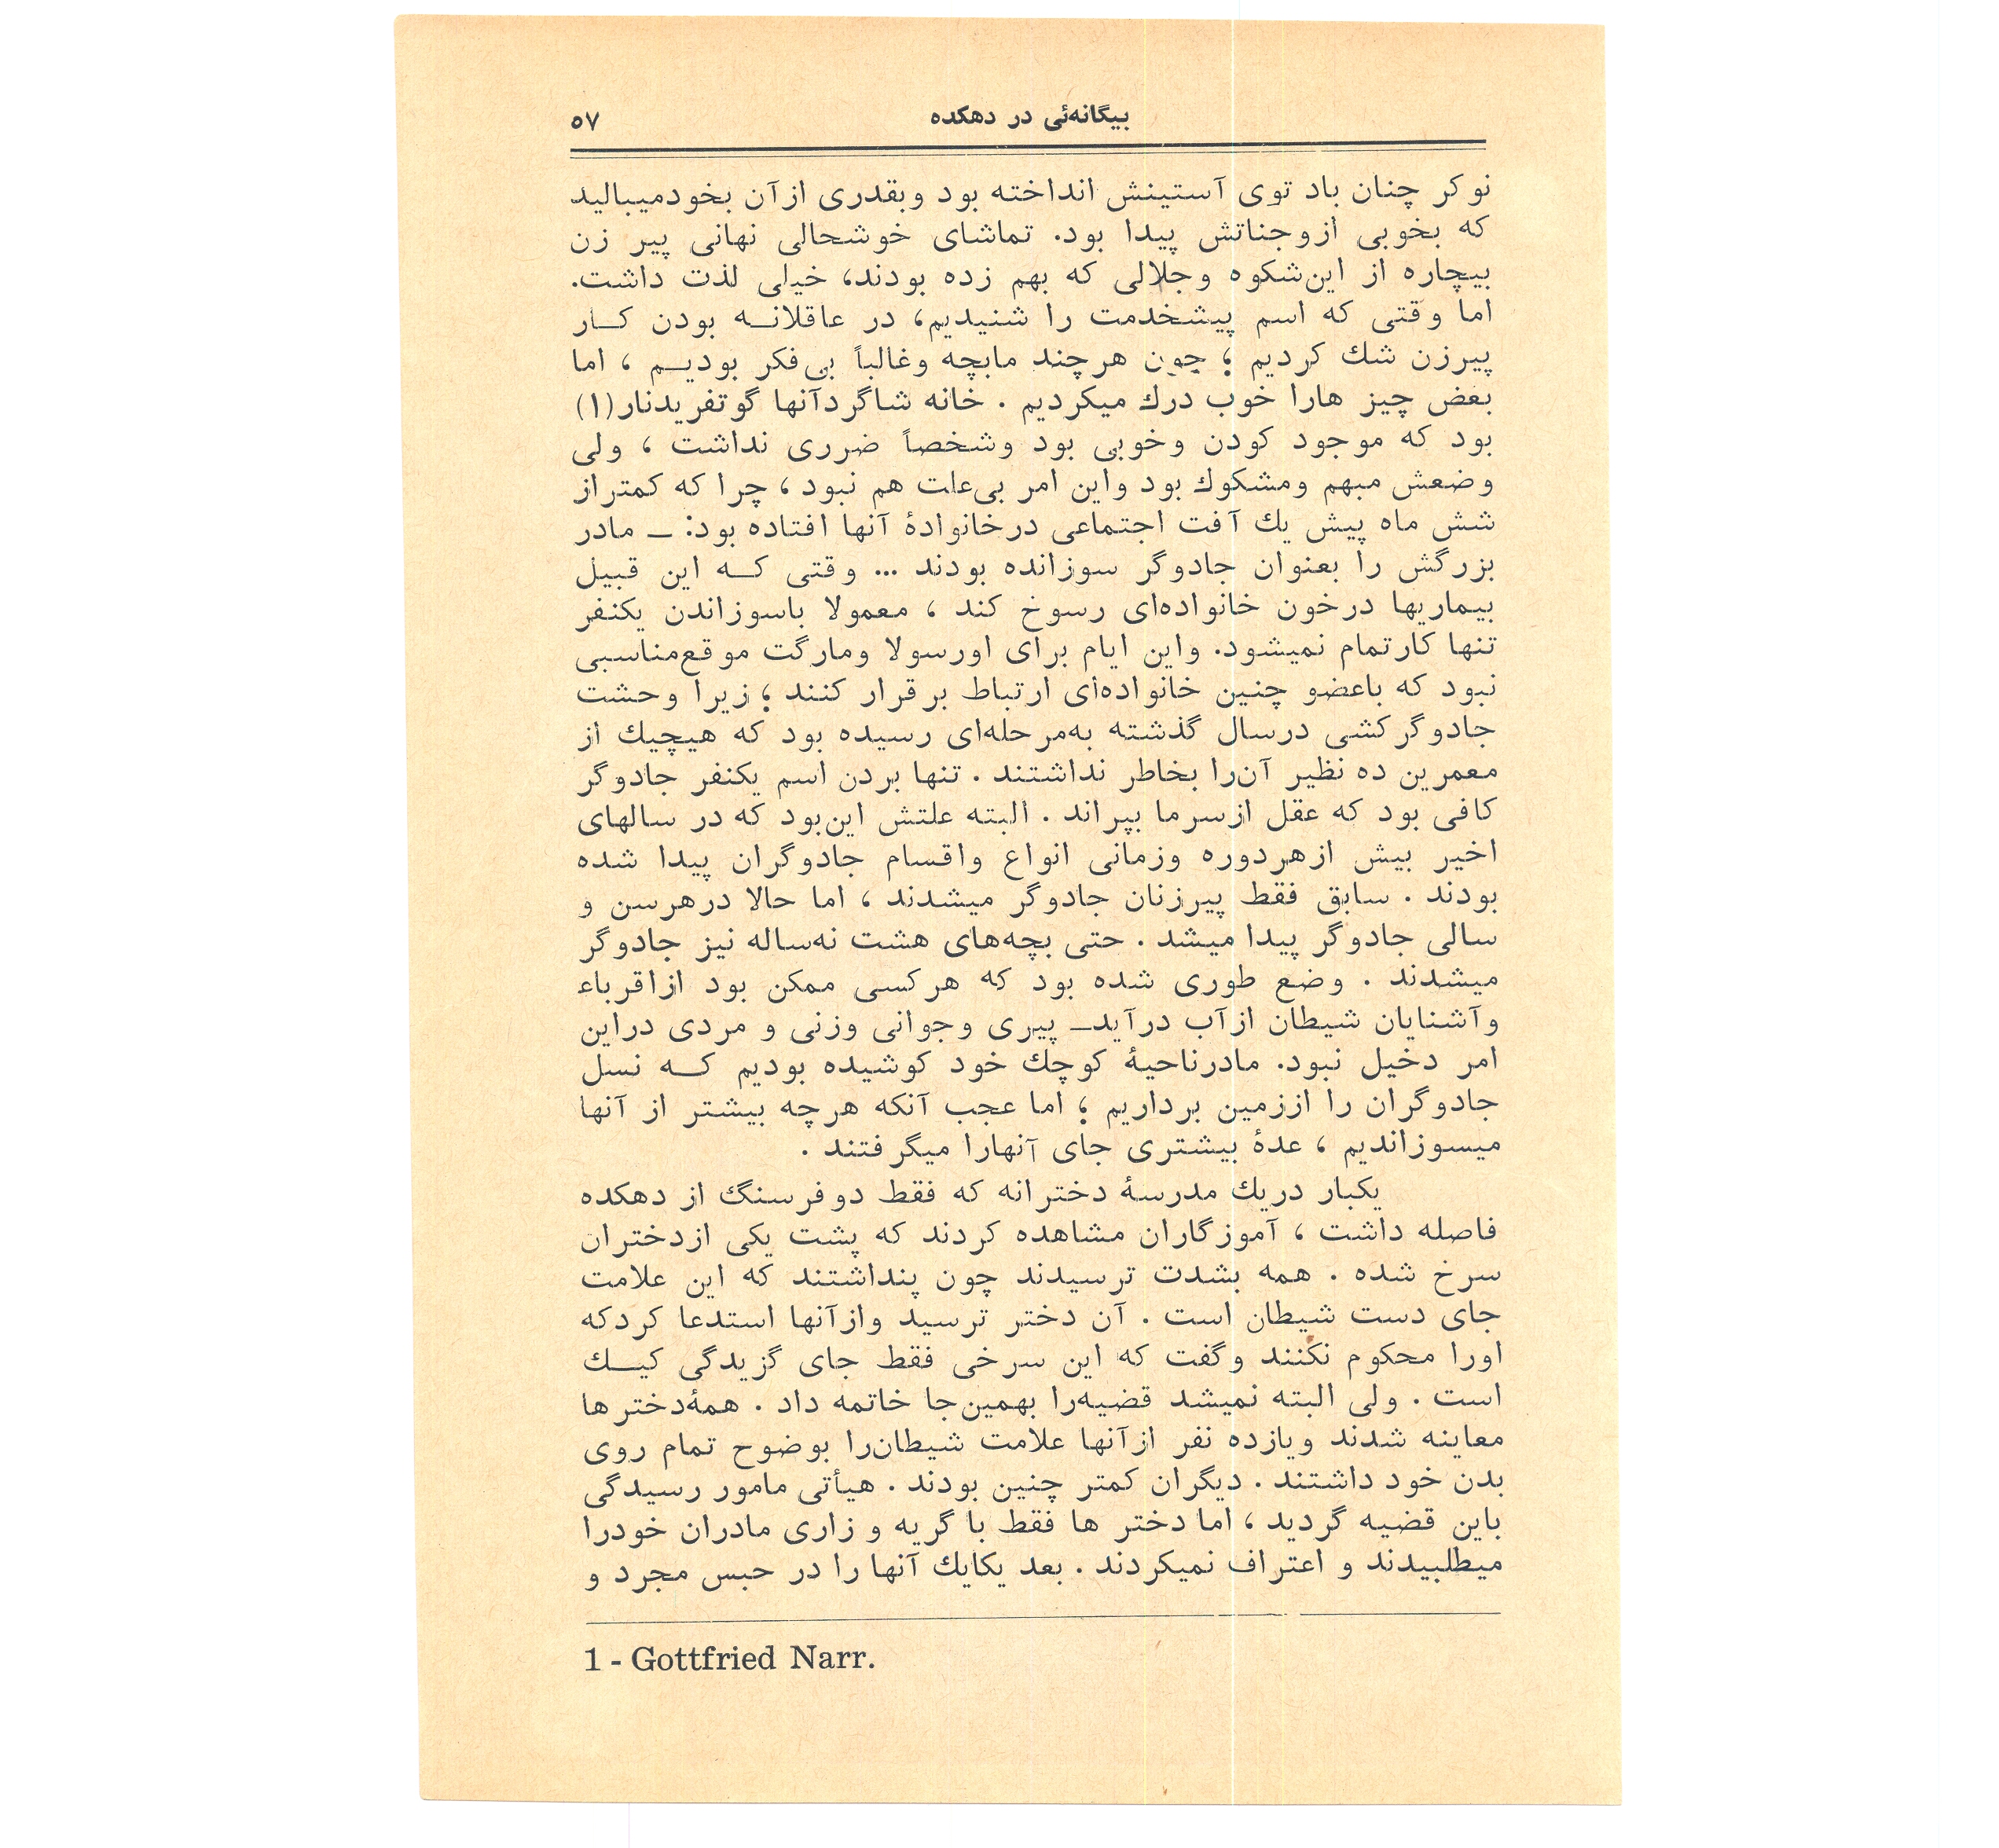 بیگانه‌ئی در دهکده
۵۷
نوکر چنان باد توی آستینش انداخته بود وبقدری ازآن بخودمیبالید
که بخوبی ازوجناتش پیدا بود. تماشای خوشحالی نهانی پیر زن
بیچاره از این‌شکوه وجلالی که بهم زده بودند، خیلی لذت داشت.
اما وقتی که اسم پیشخدمت را شنیدیم، در عاقلانه بودن کار
پیرزن شك کردیم ؛ چون هرچند مابچه وغالباً بی‌فکر بودیم ، اما
بعض چیز هارا خوب درك میکردیم . خانه شاگردآنها گوتفریدنار(۱)
بود که موجود کودن وخوبی بود وشخصاً ضرری نداشت ، ولی
وضعش مبهم ومشکوك بود واین امر بی‌علت هم نبود ، چرا که کمتراز
شش ماه پیش یك آفت اجتماعی درخانوادهٔ آنها افتاده بود: ـ مادر
بزرگش را بعنوان جادوگر سوزانده بودند ... وقتی که این قبیل
بیماریها درخون خانواده‌ای رسوخ کند ، معمولا باسوزاندن یکنفر
تنها کارتمام نمیشود. واین ایام برای اورسولا ومارگت موقع‌مناسبی
نبود که باعضو چنین خانواده‌ای ارتباط برقرار کنند ؛ زیرا وحشت
جادوگرکشی درسال گذشته به‌مرحله‌ای رسیده بود که هیچیك از
معمرین ده نظیر آن‌را بخاطر نداشتند . تنها بردن اسم یکنفر جادوگر
کافی بود که عقل ازسرما بپراند . البته علتش این‌بود که در سالهای
اخیر بیش ازهردوره وزمانی انواع واقسام جادوگران پیدا شده
بودند . سابق فقط پیرزنان جادوگر میشدند ، اما حالا درهرسن و
سالی جادوگر پیدا میشد . حتی بچه‌های هشت نه‌ساله نیز جادوگر
میشدند . وضع طوری شده بود که هرکسی ممکن بود ازاقرباء
وآشنایان شیطان ازآب درآید_ پیری وجوانی وزنی و مردی دراین
امر دخیل نبود. مادرناحیهٔ کوچك خود کوشیده بودیم که نسل
جادوگران را اززمین برداریم ؛ اما عجب آنکه هرچه بیشتر از آنها
میسوزاندیم ، عدهٔ بیشتری جای آنهارا میگرفتند .
یکبار دریك مدرسهٔ دخترانه که فقط دوفرسنگ از دهکده
فاصله داشت ، آموزگاران مشاهده کردند که پشت یکی ازدختران
سرخ شده . همه بشدت ترسیدند چون پنداشتند که این علامت
جای دست شیطان است . آن دختر ترسید وازآنها استدعا کردکه
اورا محکوم نکنند وگفت که این سرخی فقط جای گزیدگی کیك
است . ولی البته نمیشد قضیه‌را بهمین‌جا خاتمه داد . همهٔ‌دخترها
معاینه شدند ویازده نفر ازآنها علامت شیطان‌را بوضوح تمام روی
بدن خود داشتند . دیگران کمتر چنین بودند . هیأتی مامور رسیدگی
باین قضیه گردید ، اما دختر ها فقط با گریه و زاری مادران خودرا
میطلبیدند و اعتراف نمیکردند . بعد یکایك آنها را در حبس مجرد و
1 - Gottfried Narr.